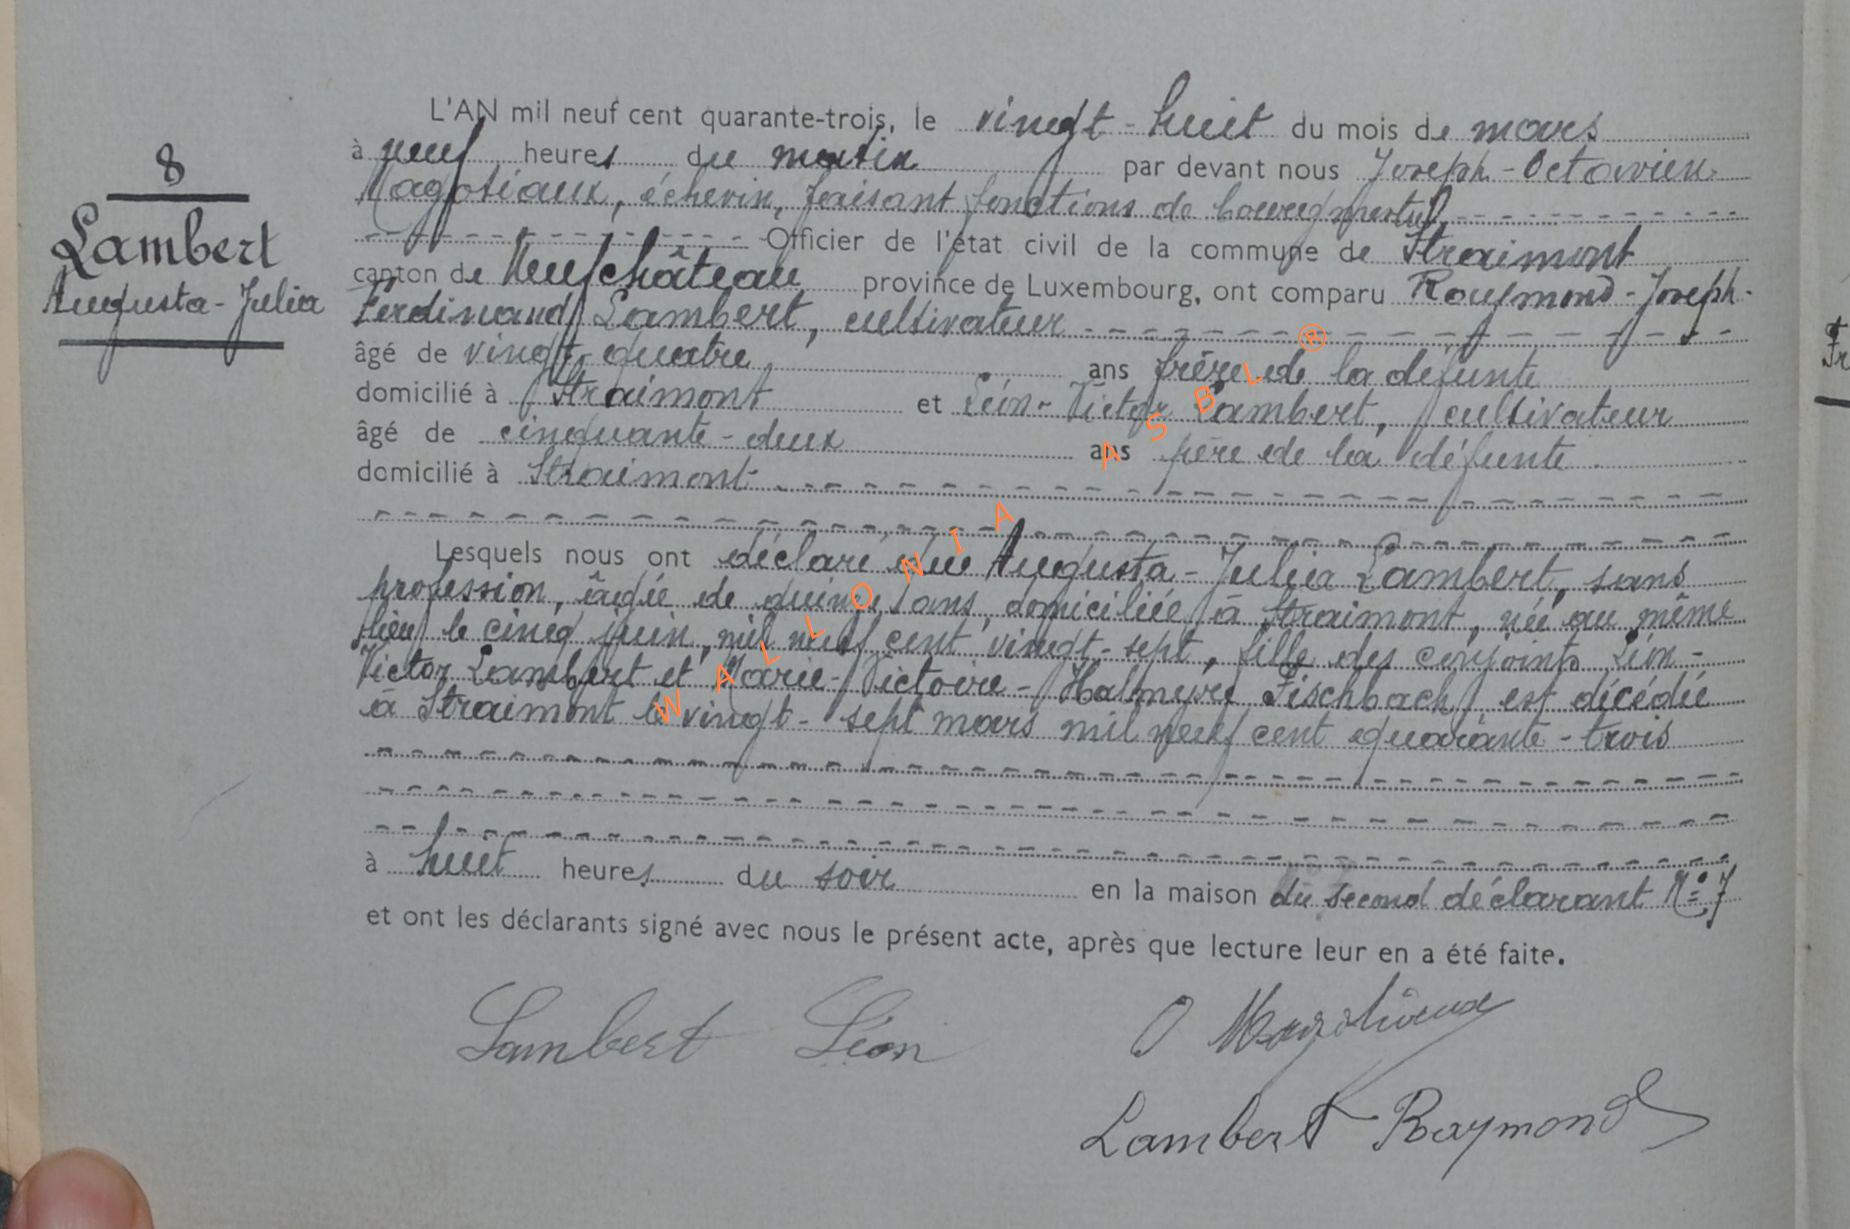 8
Lambert
Augusta-Julia
L'AN mil neuf cent quarante-trois, le vingt-huit du mois de mars
à neuf heures du matin par devant nous Joseph-Octavien
Magotiaux, échevin, faisant fonctions de bourgmestre,
Officier de l'état civil de la commune de Straimont
canton de Neufchâteau province de Luxembourg, ont comparu Raymond-Joseph-
Ferdinand Lambert, cultivateur
âgé de vingt-quatre ans frère de la défunte
domicilié à Straimont et Léon-Victor Lambert, cultivateur
âgé de cinquante-deux ans père de la défunte
domicilié à Straimont
Lesquels nous ont déclaré que Augusta-Julia Lambert, sans
profession, âgée de quinze ans, domiciliée à Straimont, née au même
lieu le cinq juin mil neuf cent vingt-sept, fille des conjoints Léon-
Victor Lambert et Marie-Victoire- Fischbach, est décédée
à Straimont le vingt-sept mars mil neuf cent quarante-trois
à huit heures du soir en la maison du second déclarant N° 7
et ont les déclarants signé avec nous le présent acte, après que lecture leur en a été faite.
Lambert Léon
O Magotiaux
Lambert Raymond
WALLONIA ASBL ®
Fr